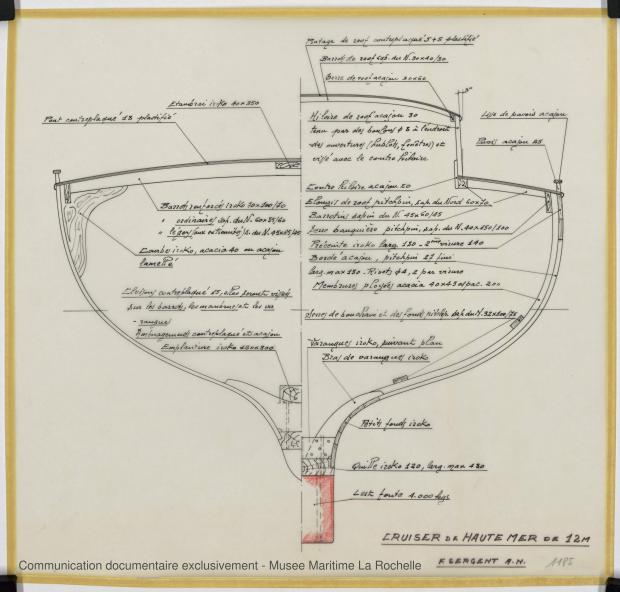 Pontage de roof contreplaqué 5+5 plastifié
Barrots de roof sap. du N. 30x40/30
Serre de roof acajou 30x50
Etambrai iroko 40x350
Pont contreplaqué 18 plastifié
Hiloire de roof acajou 30
tenu par des boulons φ 8 à l'endroit
des ouvertures (hublots, fenêtres) et
vissé avec le contre hiloire
3°
Lisse de pavois acajou
Pavois acajou 25
Contre hiloire acajou 20
Elongis de roof pitchpin, sap. du Nord 60x70
Barrotins sapin du N. 45x60/45
Serre bauquière pitchpin, sap. du N. 40x150/100
Préceinte iroko larg. 130 - 2ème virure 140
Bordé acajou, pitchpin 27 fini
larg. max 130 - Rivets φ4, 2 par virure
Membrures ployées acacia 40x45 espac. 200
Barrots renforcé iroko 70x100/60
" ordinaires sap. du N. 60x85/60
" légers (aux extrémités) S. du N. 45x85/45
Courbe iroko, acacia 40 ou acajou
lamellé
Cloisons contreplaqué 15, elles seront vissées
sur les barrots, les membrures et les va-
rangues
Aménagements contreplaqué et acajou
Emplanture iroko
Serres de bouchain et des fonds pitchp. sap. du N.
Varangues iroko, suivant plan
Bras de varangues iroko
Petits fonds iroko
Quille iroko 120, larg. max 430
Lest fonte 4.000 kgs
CRUISER DE HAUTE MER DE 12M
F. SERGENT A.N.
1185
Communication documentaire exclusivement - Musee Maritime La Rochelle